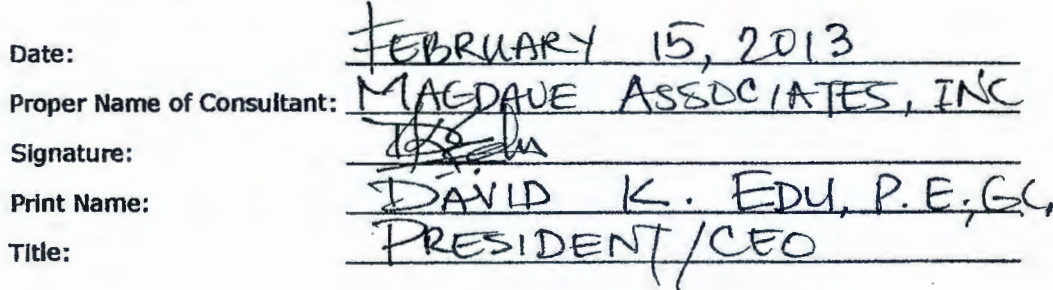 Date: FEBRUARY 15, 2013
Proper Name of Consultant: MAGDAVE ASSOCIATES, INC
Signature:
Print Name: DAVID K. EDU, P.E., GC,
Title: PRESIDENT/CEO